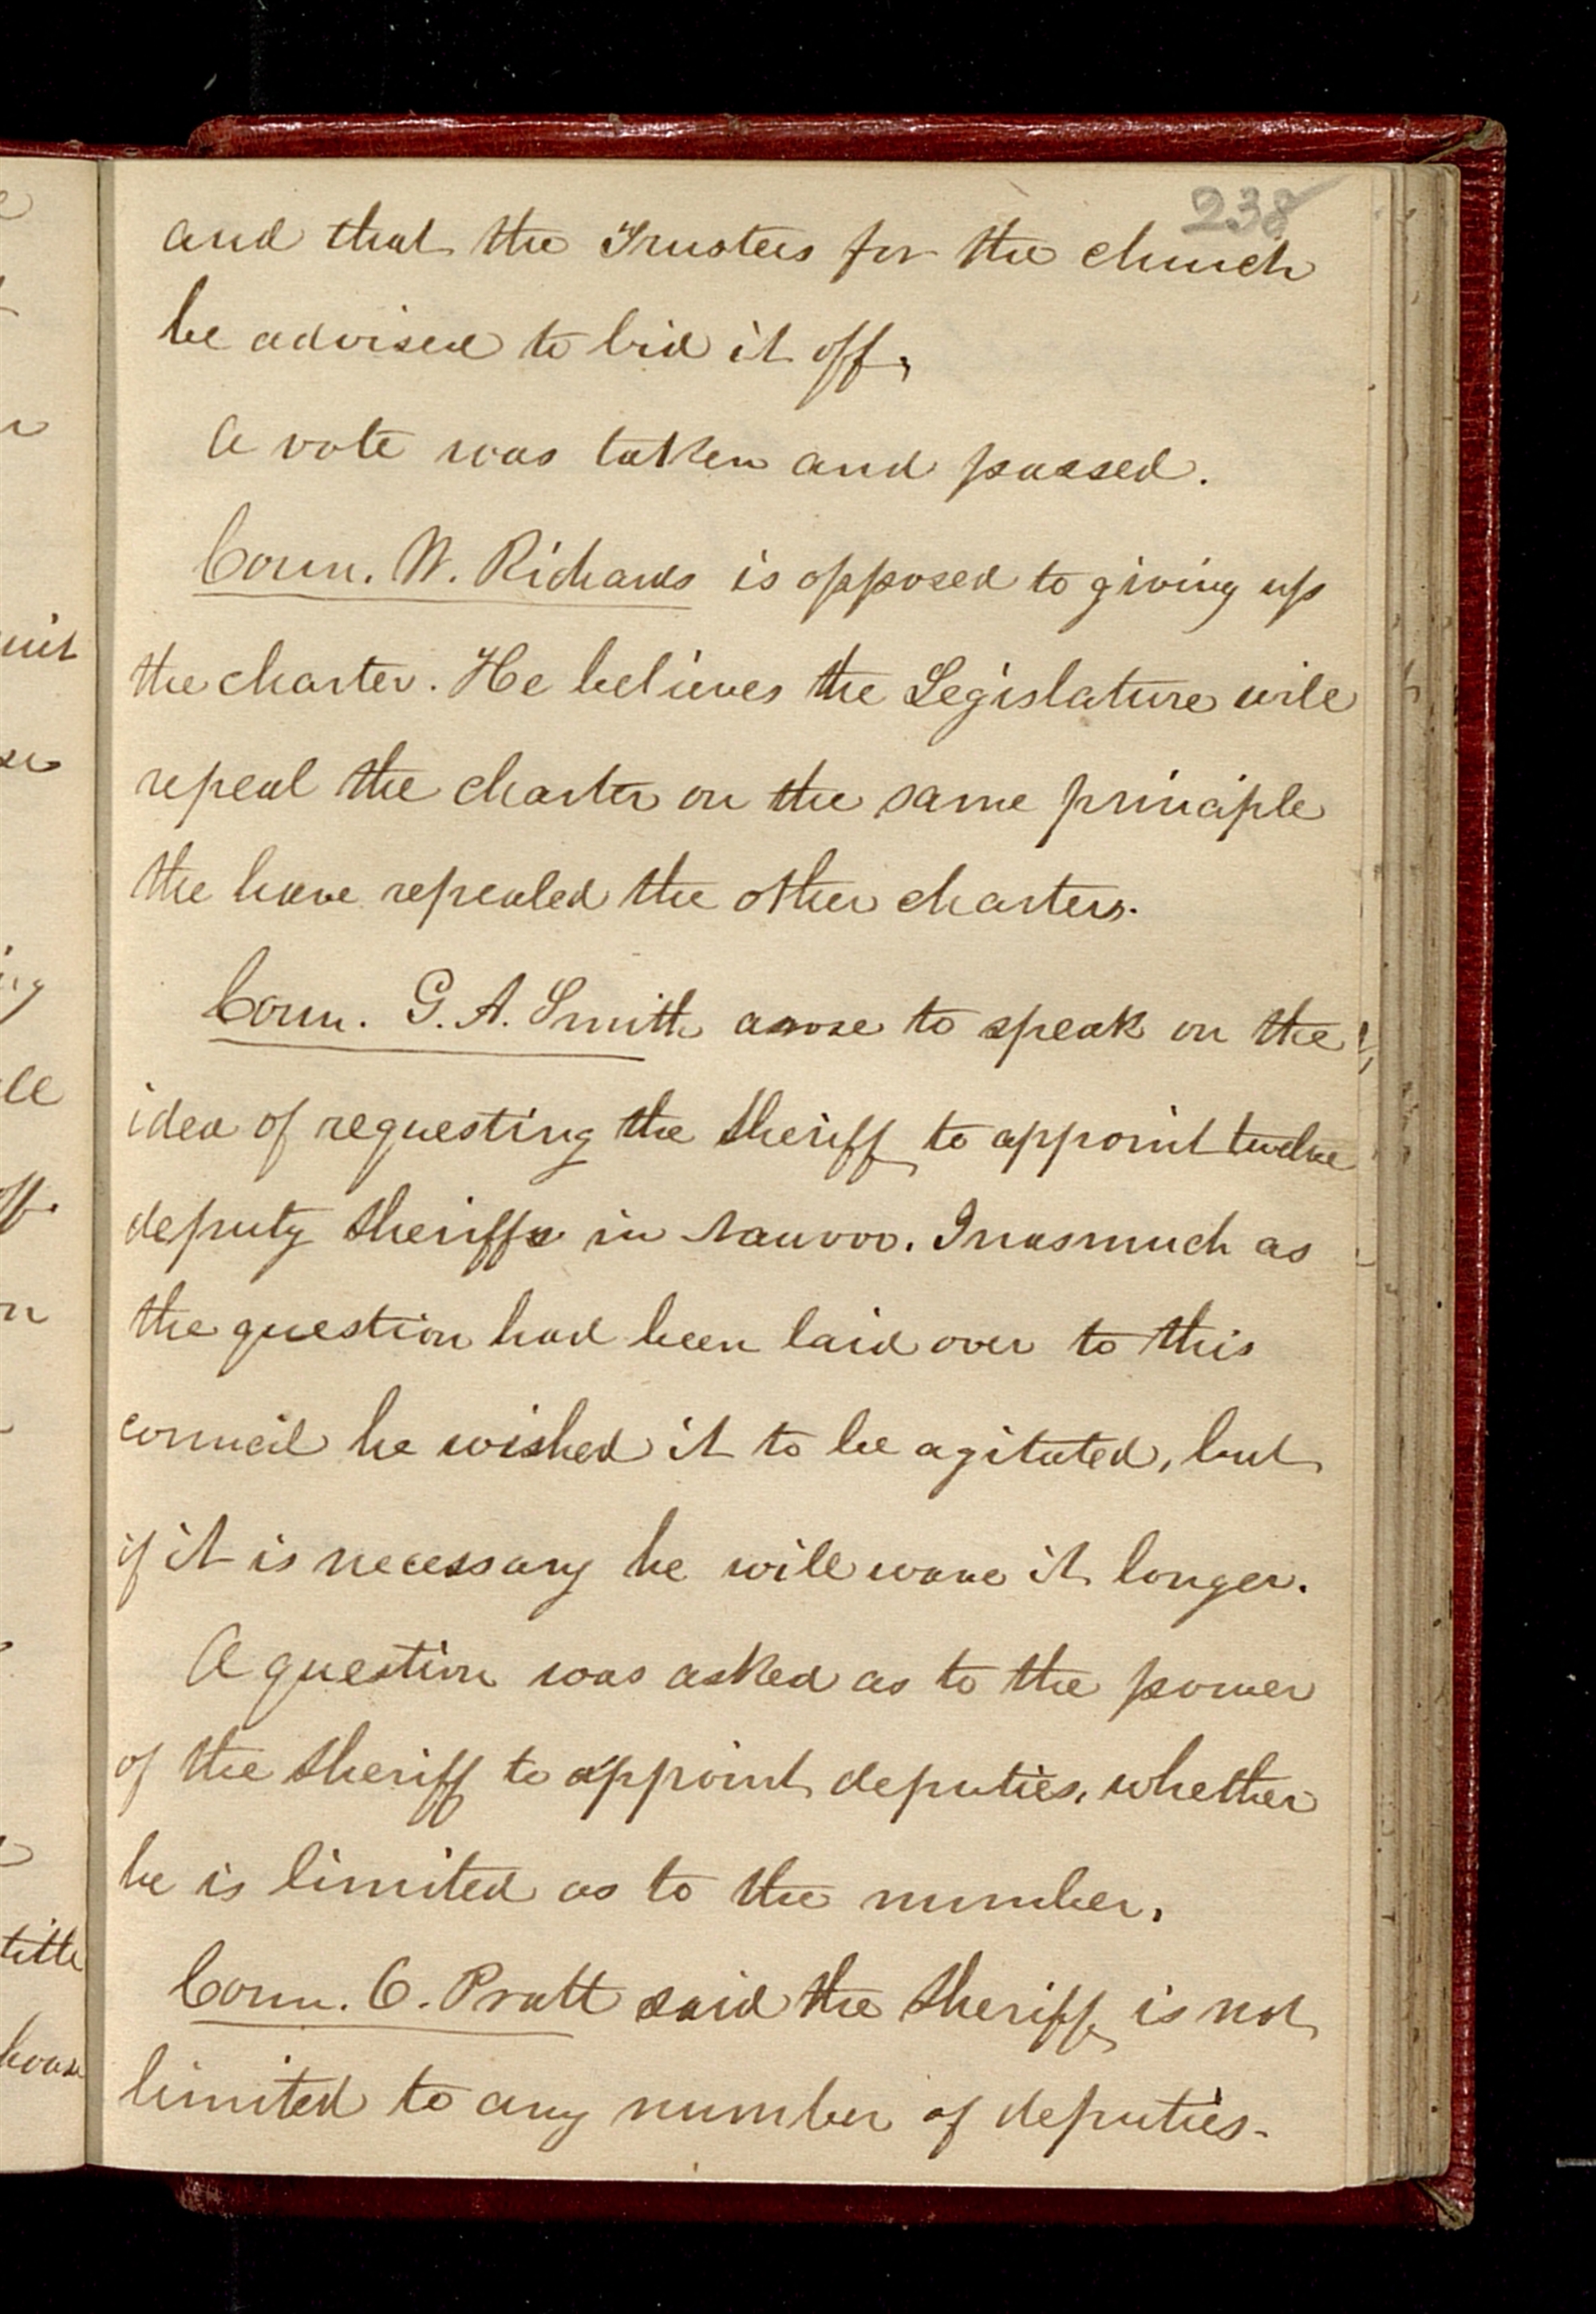 238
and that the Trustees for the church
be advised to bid it off,
A vote was taken and passed.
Coun. W. Richards is opposed to giving up
the charter. He believes the Legislature will
repeal the charter on the same principle
the have repealed the other charters.
Coun. G. A. Smith arose to speak on the
idea of requesting the Sheriff to appoint twelve
deputy Sheriffs in Nauvoo. Inasmuch as
the question had been laid over to this
council he wished it to be agitated, but
if it is necessary he will wave it longer.
A question was asked as to the power
of the Sheriff to appoint deputies, whether
he is limited as to the number.
Coun. O. Pratt said the Sheriff is not
limited to any number of deputies.